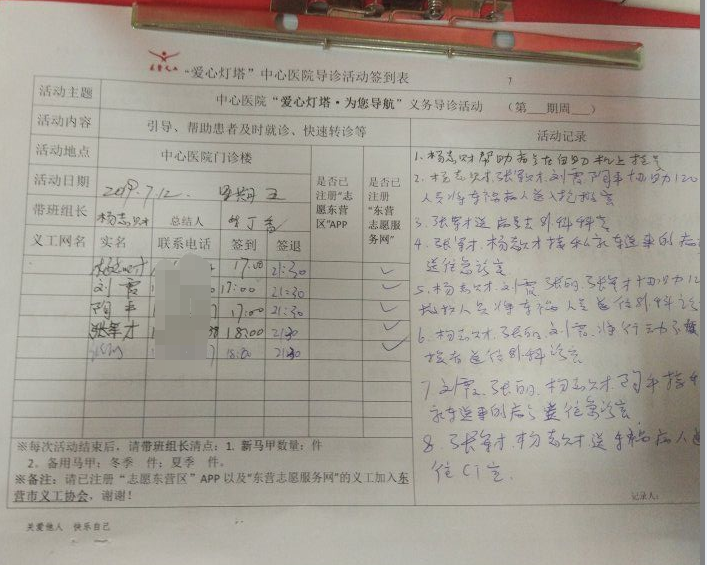 “爱心灯塔”中心医院导诊活动签到表
活动主题
中心医院“爱心灯塔·为您导航”义务导诊活动 （第___期周___）
活动内容
引导、帮助患者及时就诊、快速转诊等
活动记录
活动地点
中心医院门诊楼
是否已注册“志愿东营区”APP
是否已注册“东营志愿服务网”
活动日期
2019.7.12. 星期五
带班组长
杨志财
总结人
义工网名 实名 联系电话 签到 签退
杨志财 17:00 21:30
刘霞 17:00 21:30
陶平 17:00 21:30
张军才 18:00 21:30
21:30
1.杨志财帮助患者在自助机上挂号
2.杨志财.张军才.刘霞.陶平协助120
3.张军才送患者去外科诊室
4.张军才.杨志财接私家车送来的病
送往急诊室
5.杨志财.刘霞.张丽.张军才协助12
6.杨志财.张丽.刘霞.将行动不便
送往外科诊室
7.刘霞.张丽.杨志财.陶平接
8.张军才.杨志财送 病人
往CT室.
记录人：
※每次活动结束后，请带班组长清点：1. 新马甲数量： 件
2、备用马甲：冬季 件；夏季 件。
※备注：请已注册“志愿东营区”APP 以及“东营志愿服务网”的义工加入东
营市义工协会，谢谢！
关爱他人 快乐自己